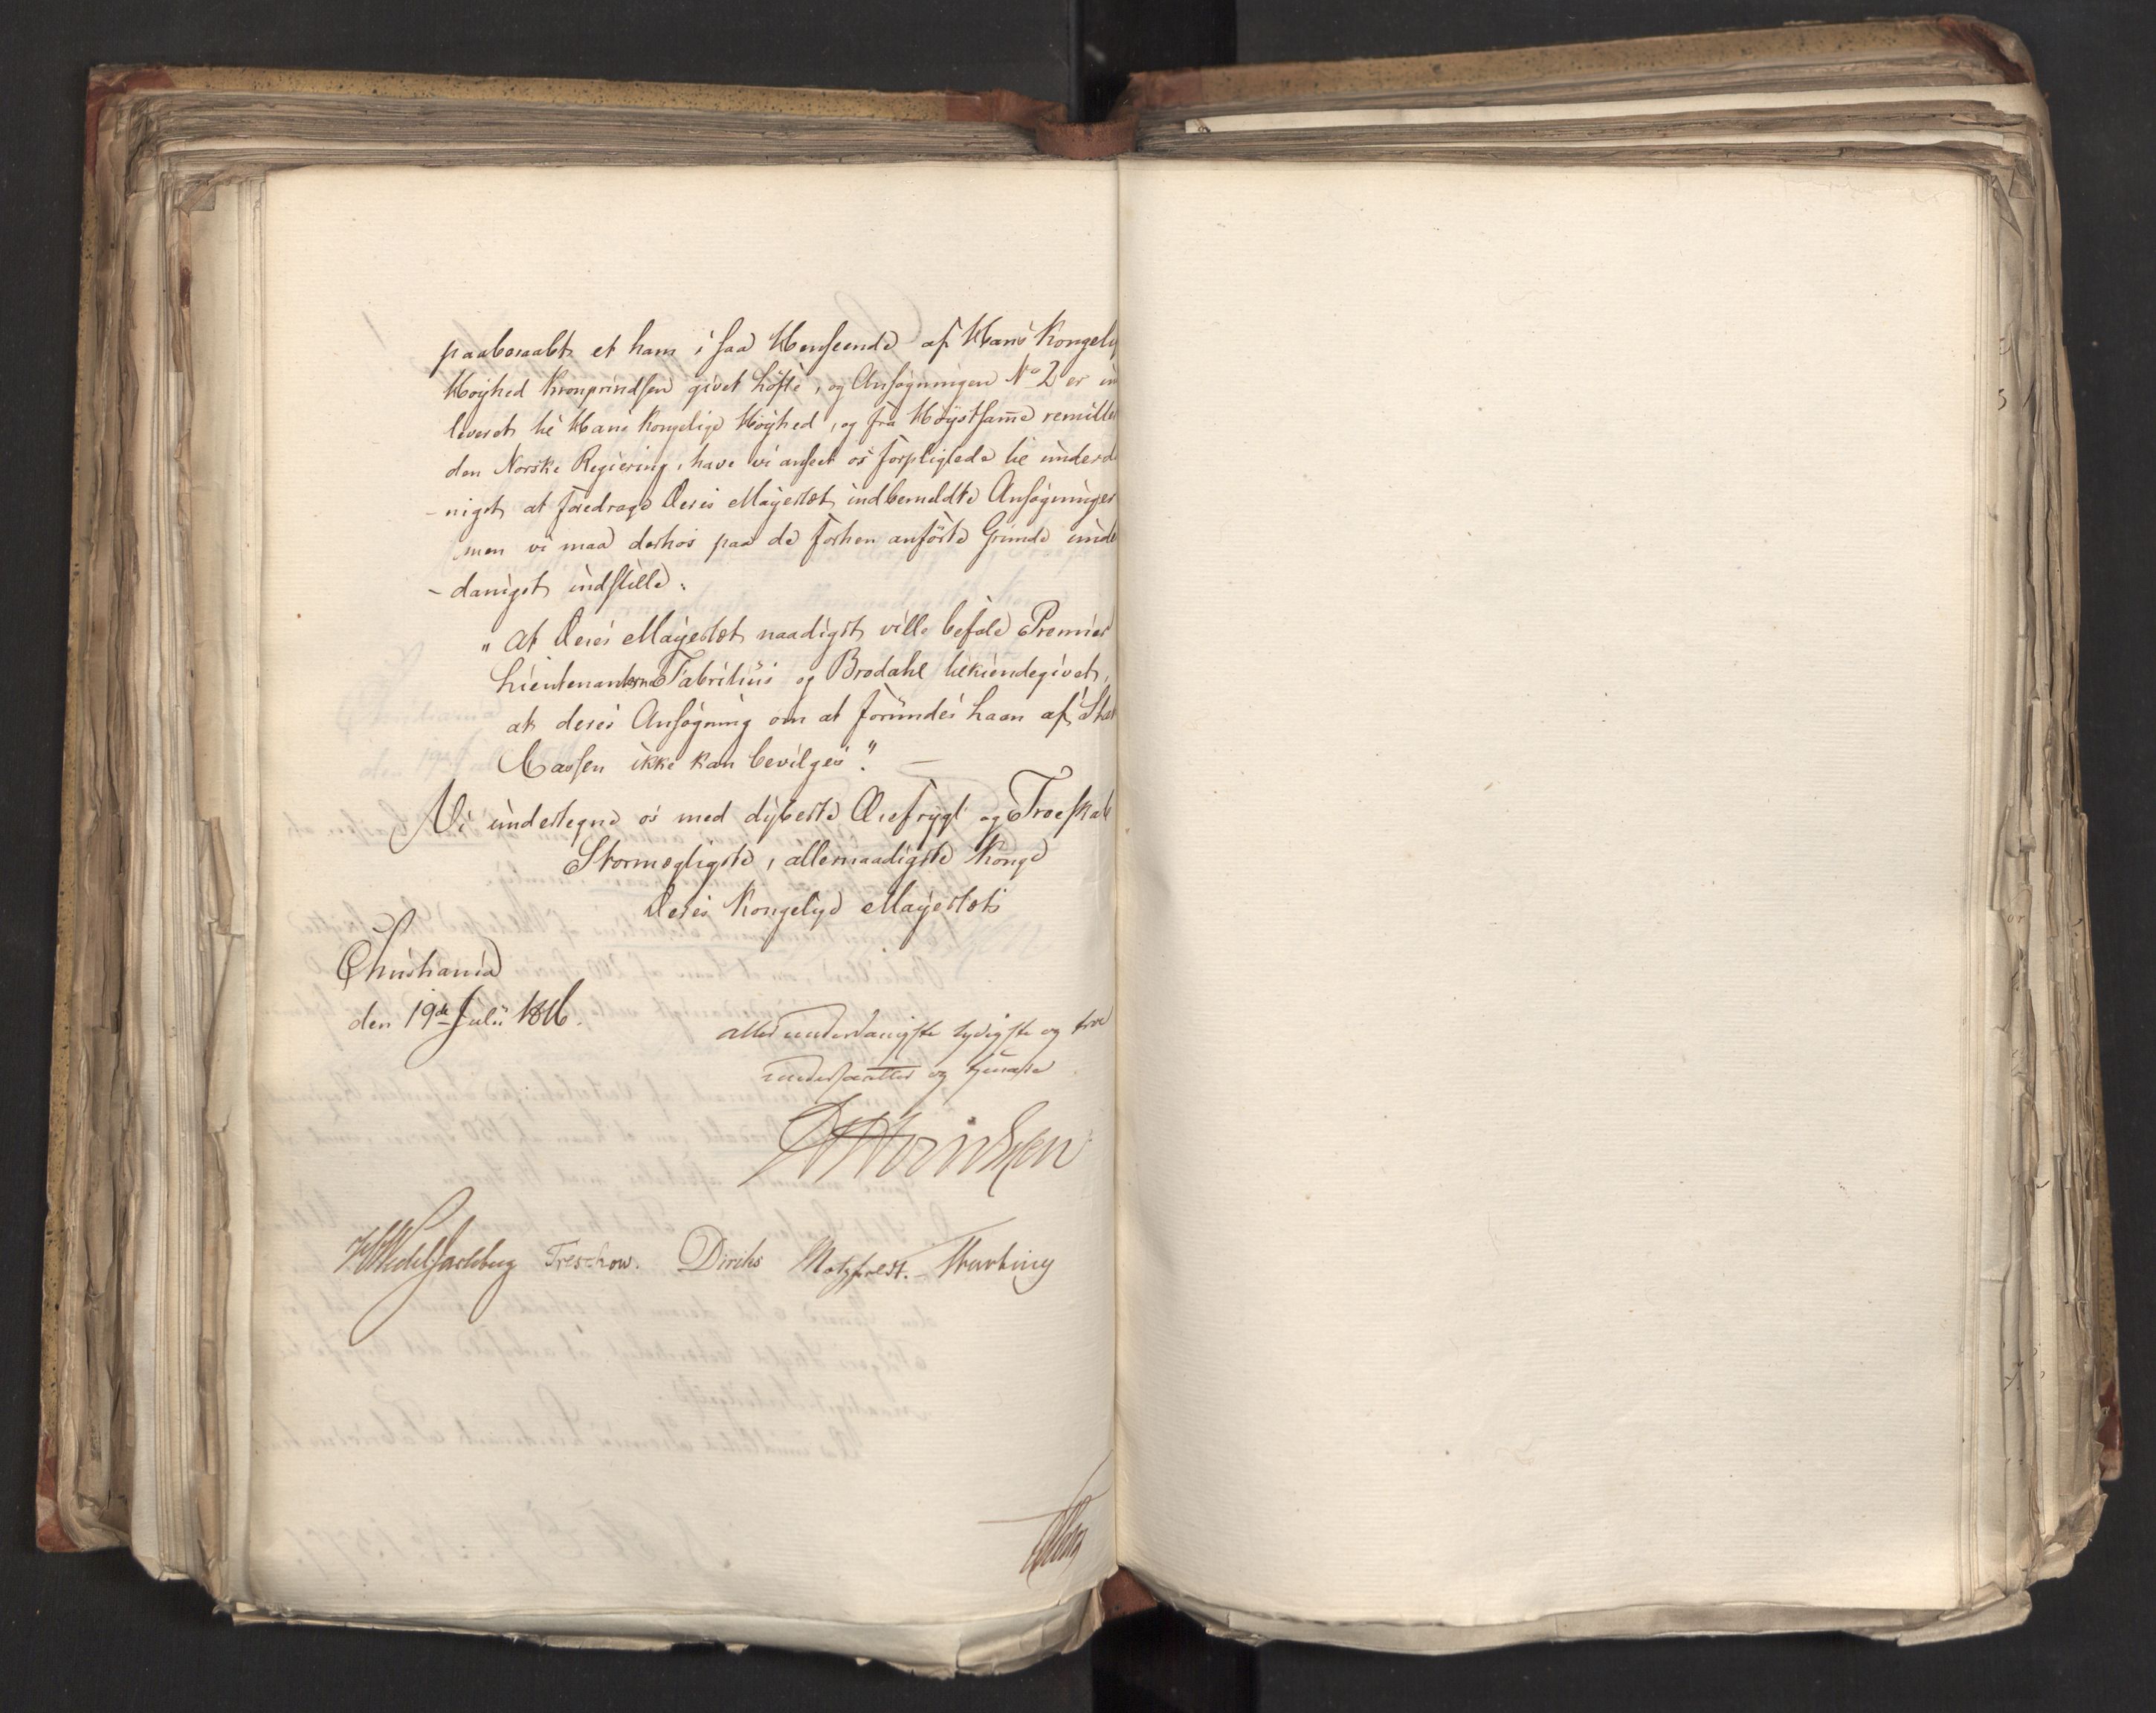 paaberaabt et ham i saa Henseende af Hans Kongeli
Høyhed Kronprindsen givet Løfte, og Ansøgningen No 2 er in
leveret til Hans Kongelige Høyhed, og fra Høystsam̄e remitte
den Norske Regiering, have vi anseet os forpligtede til underd
-nigst at foredrage Deres Mayestæt indbemeldte Ansøgninger
men vi maa derhos paa de forhen anførte Grunde unde
-danigst indstille:
"At Deres Mayestæt naadigst ville befale Premier
Lieutenanterne Fabritius og Brodahl tilkiendegivet,
at deres Ansøgning om at forundes Laan af Stat
Cassen ikke kan bevilges". —
Vi undertegne os med dybeste Ærefrygt og Troeskab
Stormægtigste, allernaadigste Konge
Deres Kongelige Mayestæts
Christiania
den 19de Julii 1816.
allerunderdanigste lydigste og troe
undersaatter og tjenere
Hwedeljarlsberg Treschow. Diriks Motzfeldt. Krebting